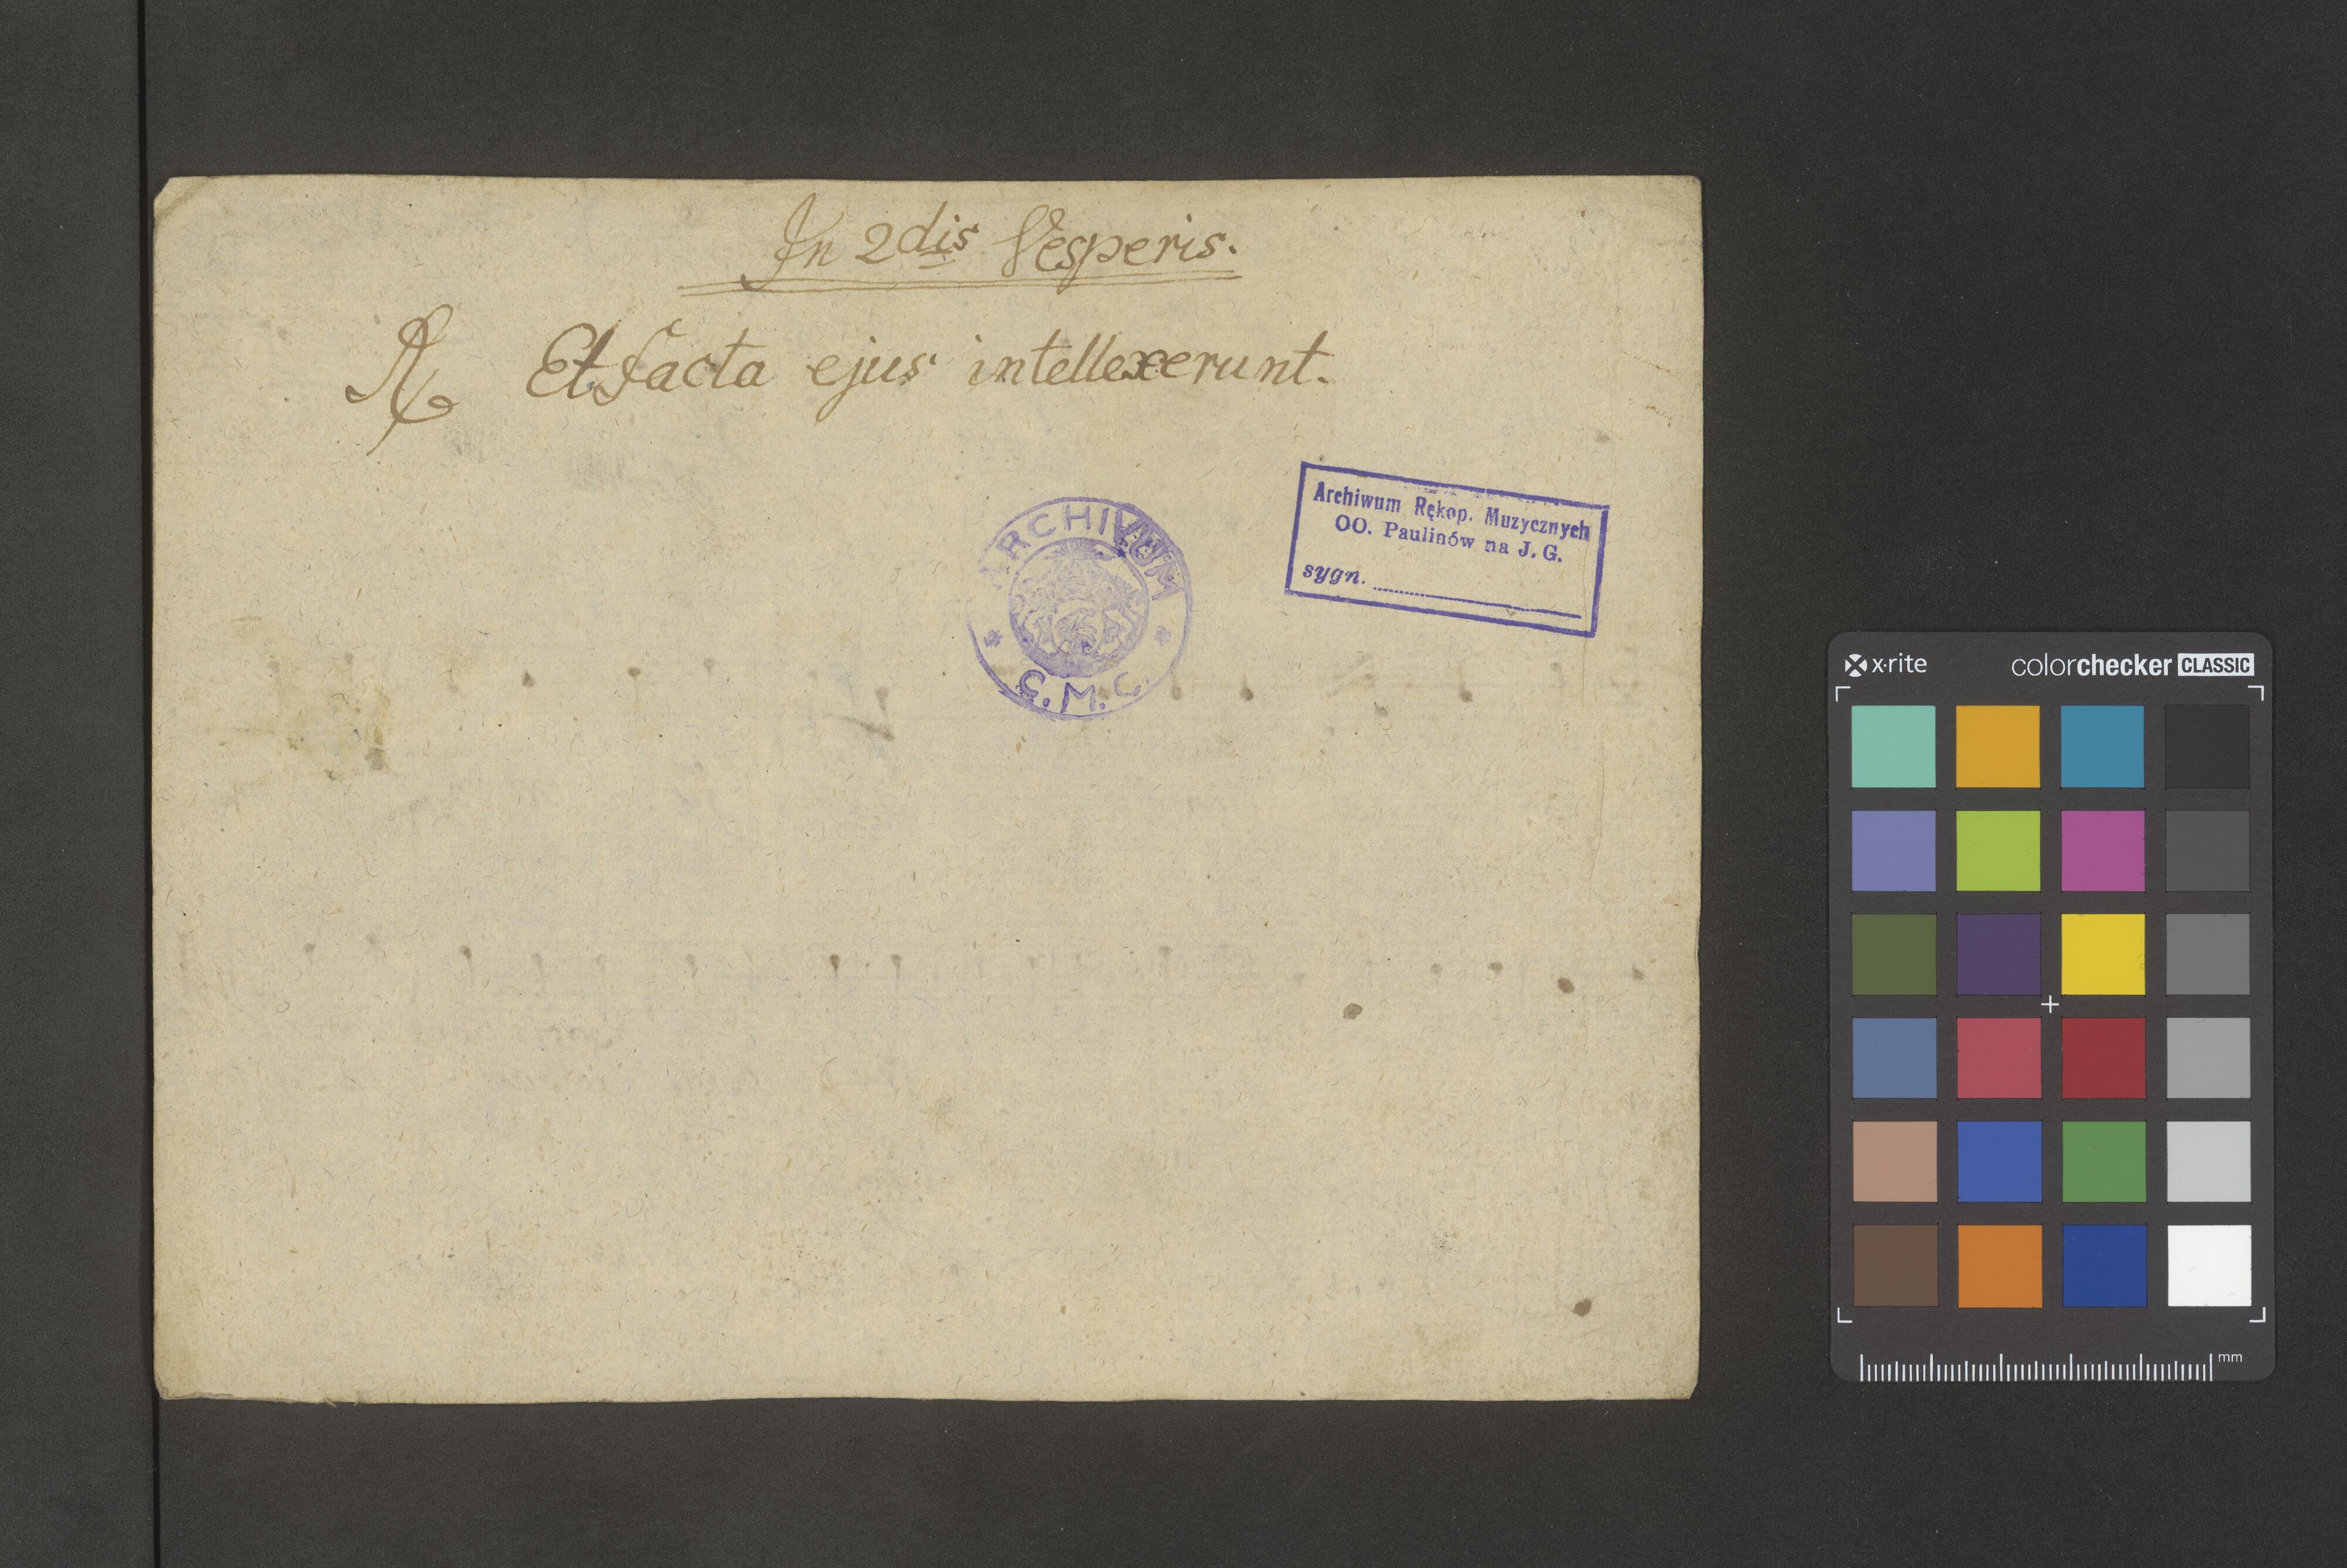 In 2dis Vesperis.
℟ Et facta ejus intellexerunt.
ARCHIVUM
C.M.C.
Archiwum Rękop. Muzycznych
OO. Paulinów na J. G.
sygn.
x·rite colorchecker CLASSIC
mm